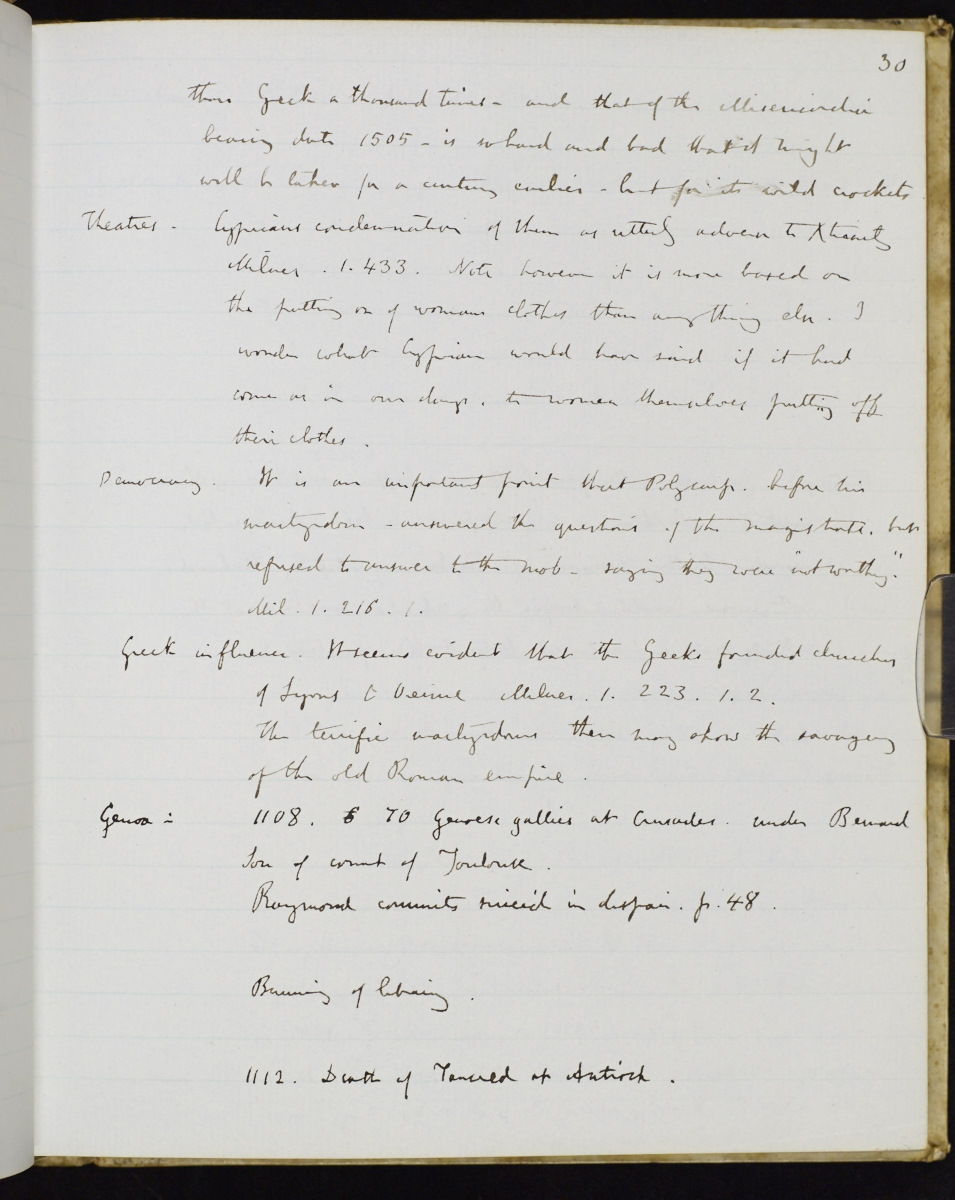 30
than Greek a thousand times - and that of the Misericordia
bearing date 1505 - is so hard and bad that it might
well be taken for a century earlier - but for its wild crockets.
Theatres - Cyprians condemnation of them as utterly adverse to Xtianity
Milner . 1. 433. Note however it is more based on
the putting on of womans clothes than anything else. I
wonder what Cyprian would have said if it had
come as in our days, to women themselves putting off
their clothes.
Democracy. It is an important point that Polycarp. before his
martyrdom - answered the questions of the magistrate, but
refused to answer to the mob - saying they were "not worthy."
Mil. 1. 216. 1.
Greek influence. It seems evident that the Greeks founded churches
of Lyons & Vienne Milner. 1. 223. 1. 2.
The terrific martyrdoms there may show the savagery
of the old Roman empire.
Genoa :- 1108. 70 Genoese gallies at Crusades. under Bernard
Son of count of Toulouse.
Raymond commits suicide in despair. p. 48.
Burning of library.
1112. Death of Tancred at Antioch.